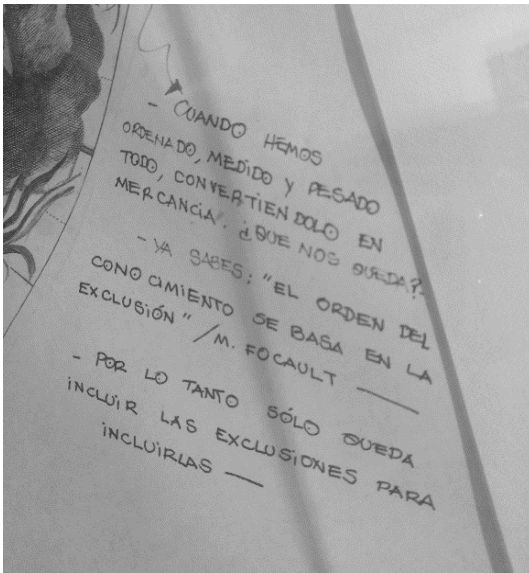 - CUANDO HEMOS
ORDENADO, MEDIDO Y PESADO
TODO, CONVERTIENDOLO EN
MERCANCiA. ¿QUE NOS QUEDA?-
- YA SABES: "EL ORDEN DEL
CONOCIMIENTO SE BASA EN LA
EXCLUSIÓN" / M. FOCAULT —
- POR LO TANTO SÓLO QUEDA
iNCLUiR LAS EXCLUSIONES PARA
iNCLUiRLAS —